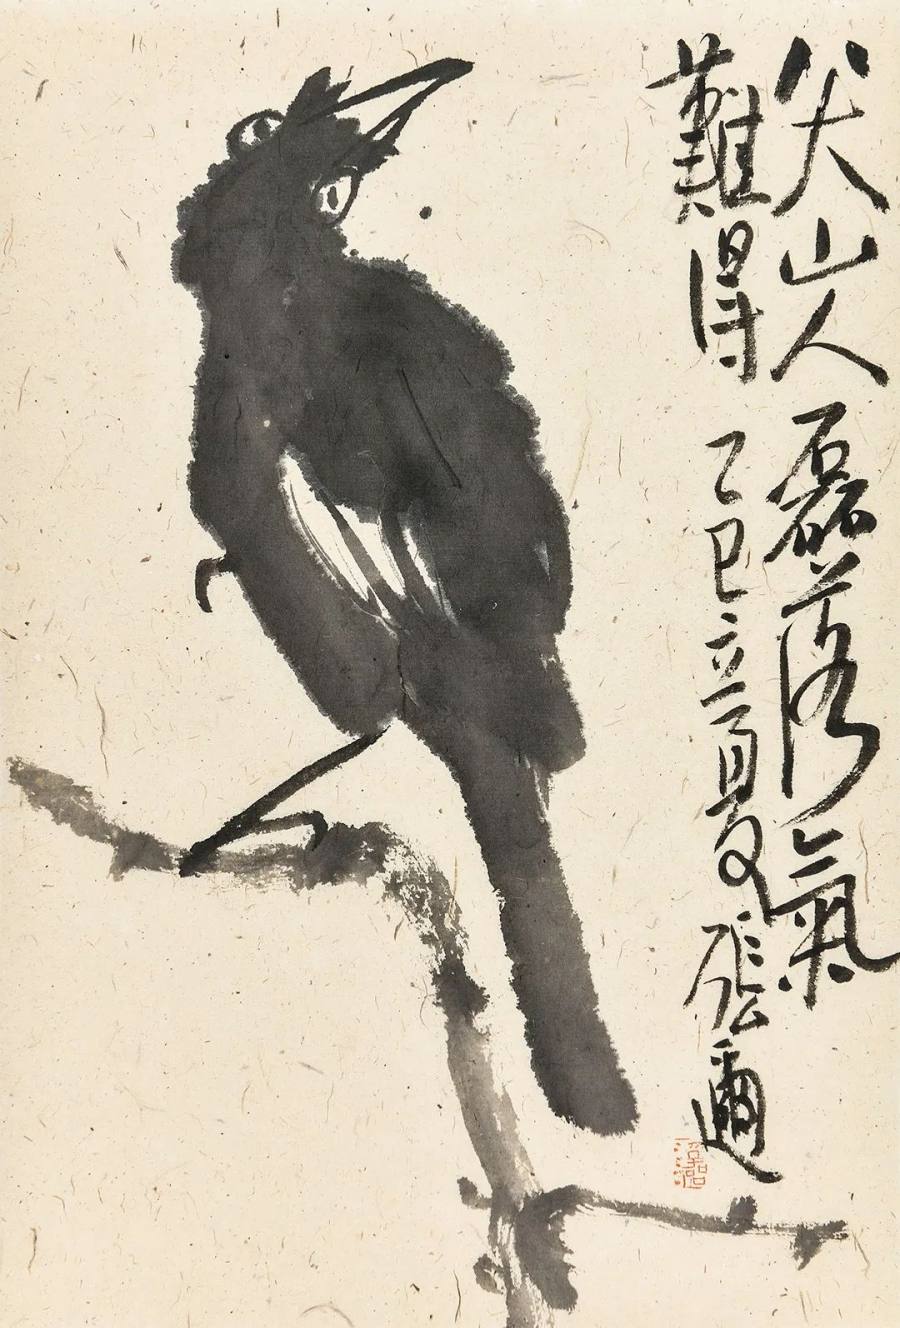 八大山人磊落氣
難得 乙巳立夏 張邇